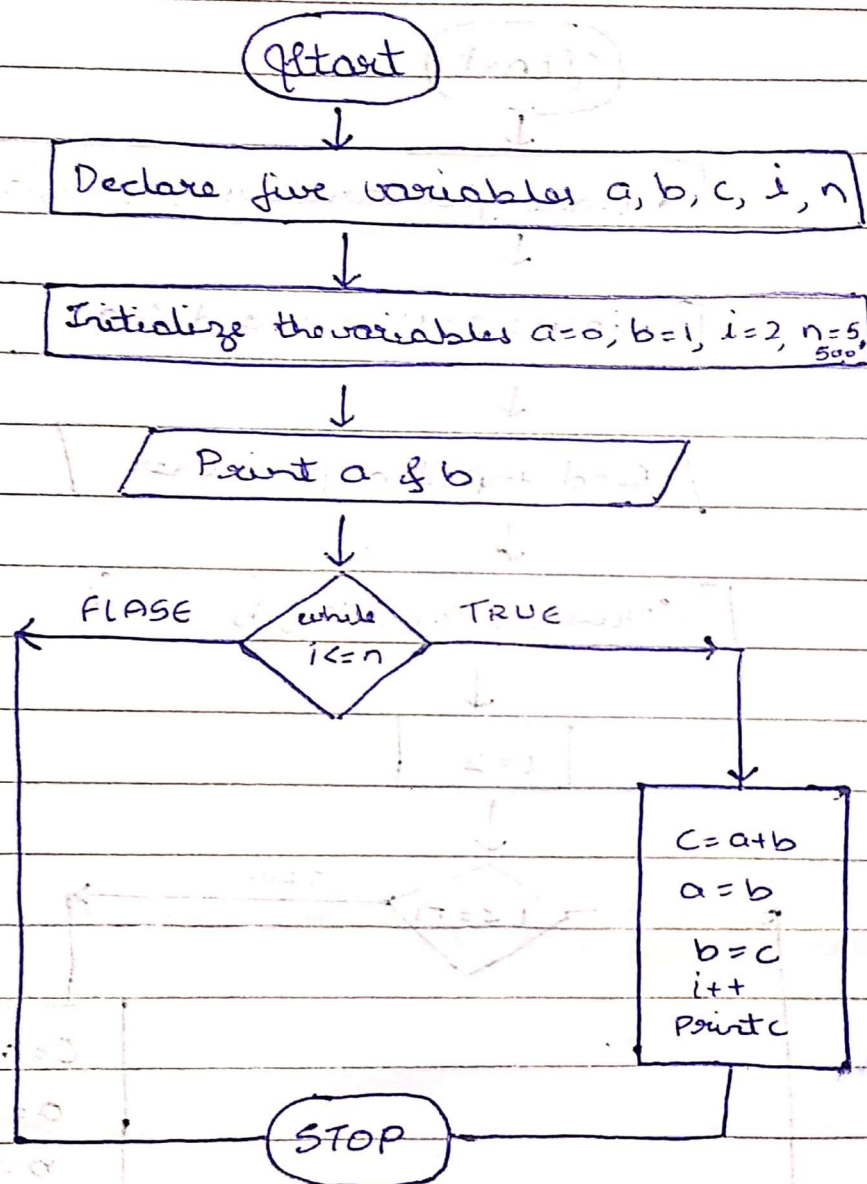 Start
Declare five variables a, b, c, i, n
Initialize the variables a=0, b=1, i=2, n=5,
500
Print a & b
FLASE
while
i<=n
TRUE
C=a+b
a=b
b=c
i++
Print c
STOP